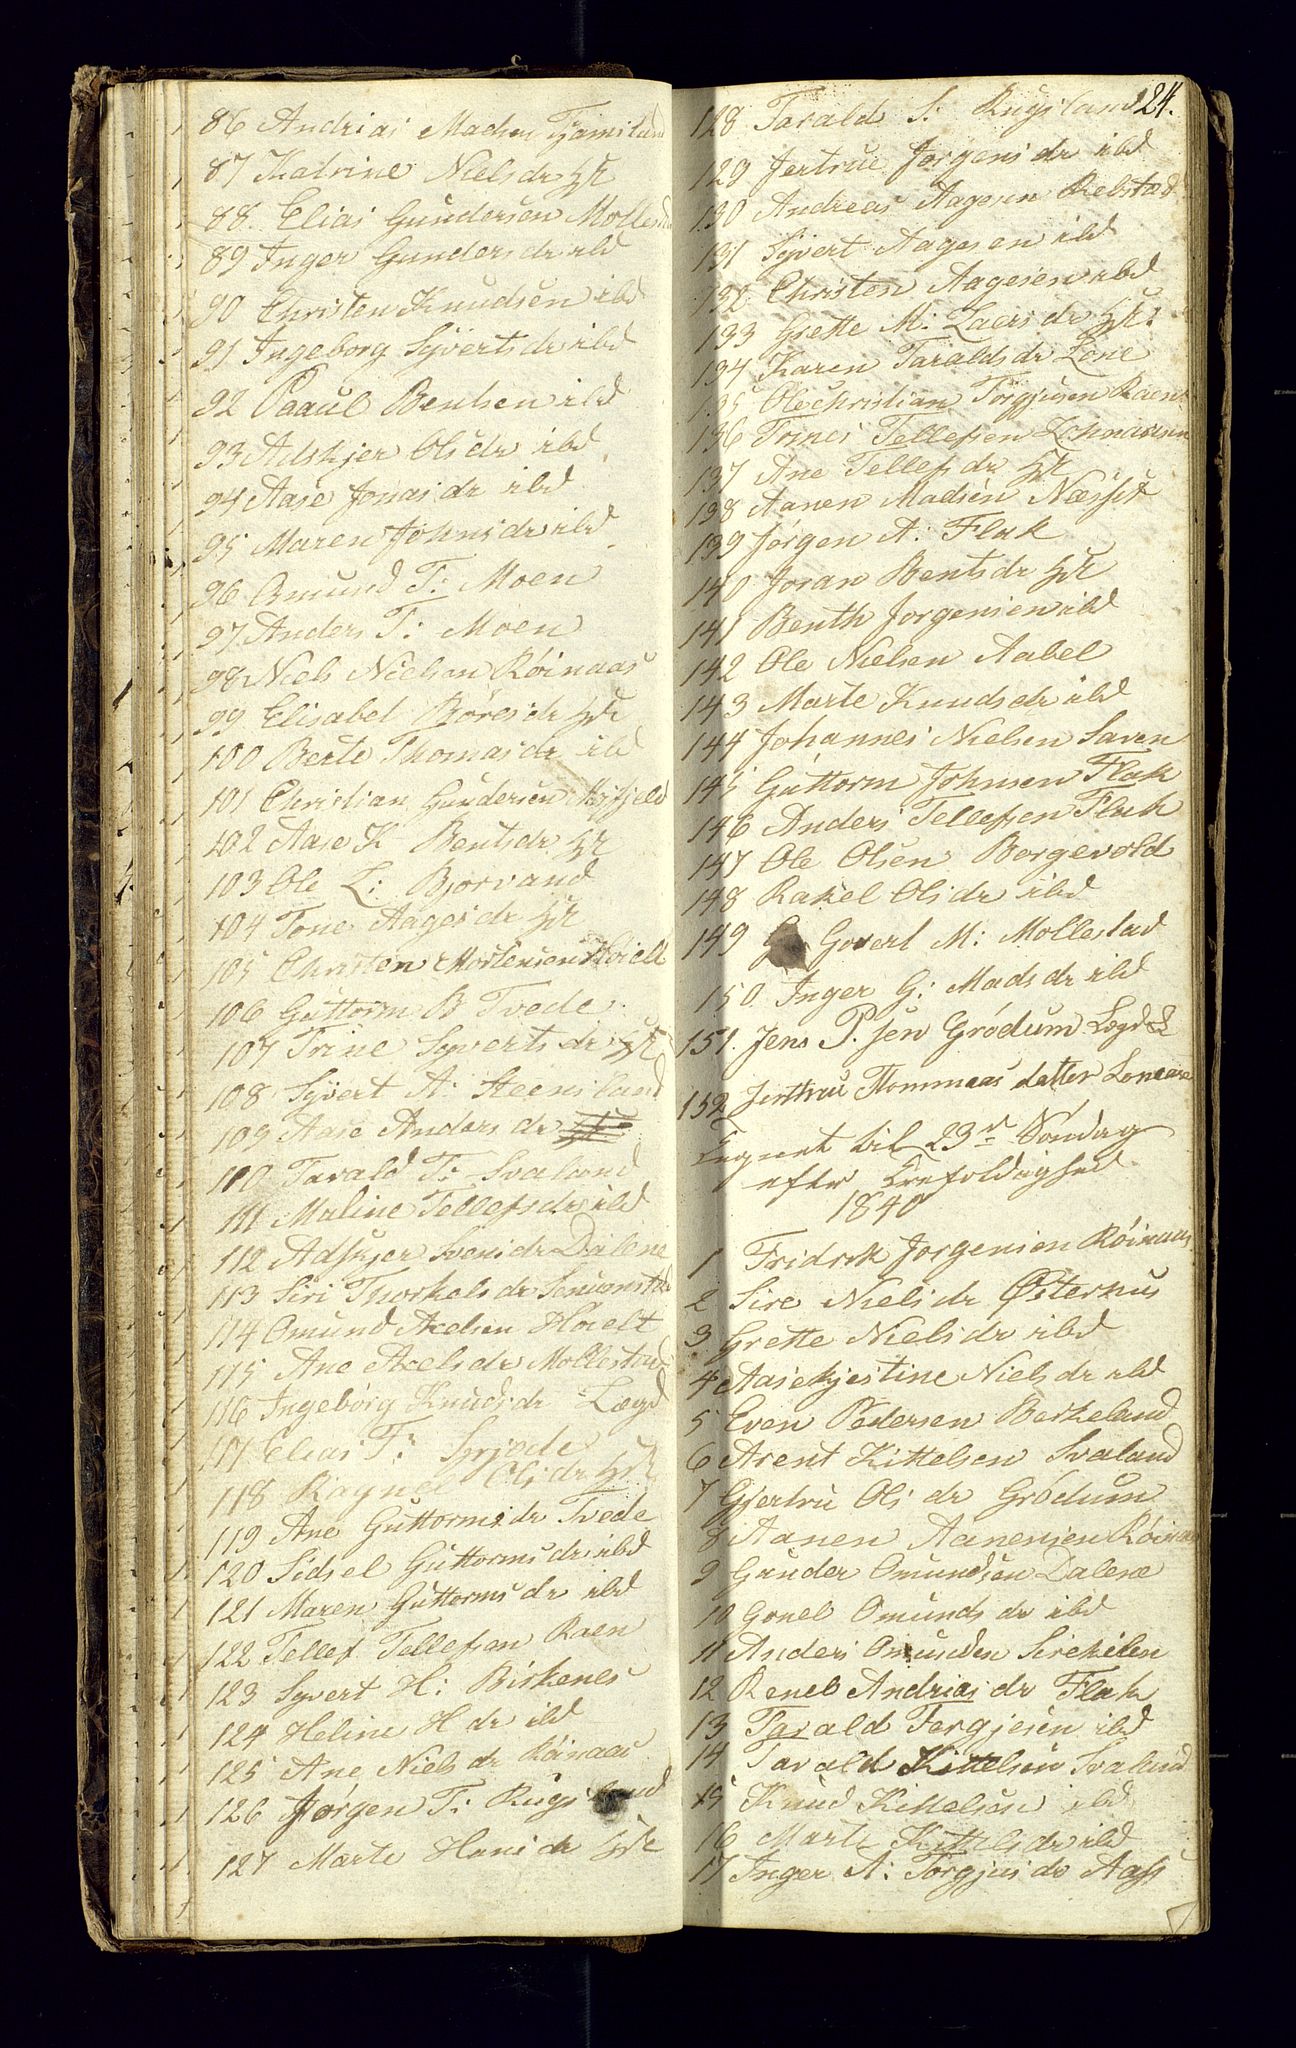 86 Andrias Madsen Tjamsland
87 Katrine Nielsdr HK
88. Elias Gundersen Mollestad
89 Inger Gundersdr ibd
90 Christen Knudsen ibd
91 Ingeborg Syvertsdr ibd
92 Paaul Bentsen ibd
93 Adskjer Olsdr ibd
94 Aase Jonasdr ibd
95 Maren Johnsdr ibd
96 Omund T: Moen
97 Anders T: Moen
98 Niels Nielsen Röinaas
99 Elisabet Böresdr HK
100 Berte Thomasdr ibd
101 Christian Gundersen
102 Aase K Bentsdr HK
103 Ole L: Bjorvand
104 Tone Aagesdr HK
105 Christen Mortensen Höielt
106 Guttorm B Tvede
107 Trine Syvertsdr HK
108 Syvert A: Steensland
109 Aase Andersdr
110 Tarald T: Svaland
111 Maline Tellefsdr ibd
112 Adskjer Svensdr Dalene
113 Siri Thorkelsdr
114 Omund Axelsen Höielt
115 Ane Axelsdr Mollestad
116 Ingebörg Knudsdr Lægd
117 Elias T:
118 Ragnel Olsdr HK
119 Ane Guttormsdr Tvede
120 Sidsel Guttormsdr ibd
121 Maren Guttormsdr ibd
122 Tellef Tellefsen Raen
123 Syvert H: Birkenes
124 Heline H dr ibd
125 Ane Nielsdr Röinaas
126 Jörgen T: Rugsland
127 Marte Hansdr HK
24.
128 Tarald S: Rugsland
129 Jertrue Jorgensdr ibd
130 Andreas Aagesen Rebstad
131 Syvert Aagesen ibd
132 Christen Aagesen ibd
133 Grette M: Laersdr HK:
134 Karen Taraldsdr Lone
135 Olechristian Torgjusen Raen
136 Tönes Tellefsen
137 Ane Tellefsdr HK
138 Aanen Madsen
139 Jørgen A: Flak
140 Joran Bentsdr HK
141 Benth Jorgensen ibd
142 Ole Nielsen Aabel
143 Marte Knudsdr ibd
144 Johannes Nielsen Saren
145 Guttorm Johnsen Flak
146 Anders Tellefsen Flak
147 Ole Olsen Borgevold
148 Rakel Olsdr ibd
149 Govert M: Mollestad
150 Inger G: Madsdr ibd
151. Jens P.sen Grödum Lægd
152 Jerttrue Thommeas datter
Tegnet til 23de Söndag
efter Trefoldighed
1840
1 Fridrek Jorgensen Röinaas
2 Sire Nielsdr Østerhus
3 Grette Nielsdr ibd
4 Aasekjestine Nielsdr ibd
5 Even Pedersen Berkeland
6 Arent Kittelsen Svaland
7 Gjertru Olsdr Grödum
8 Aanen Aanensen Röinaas
9 Gunder Omundsen Dalene
10 Gonel Omundsdr ibd
11 Anders Omundsen Sirekilen
12 Renel Andriasdr Flak
13 Tarald Tergjesen ibd
14 Tarald Kittelsen Svaland
15 Knud Kittelsen ibd
16 Marte Kittelsdr ibd
17 Inger A: Torgjusdr Aass